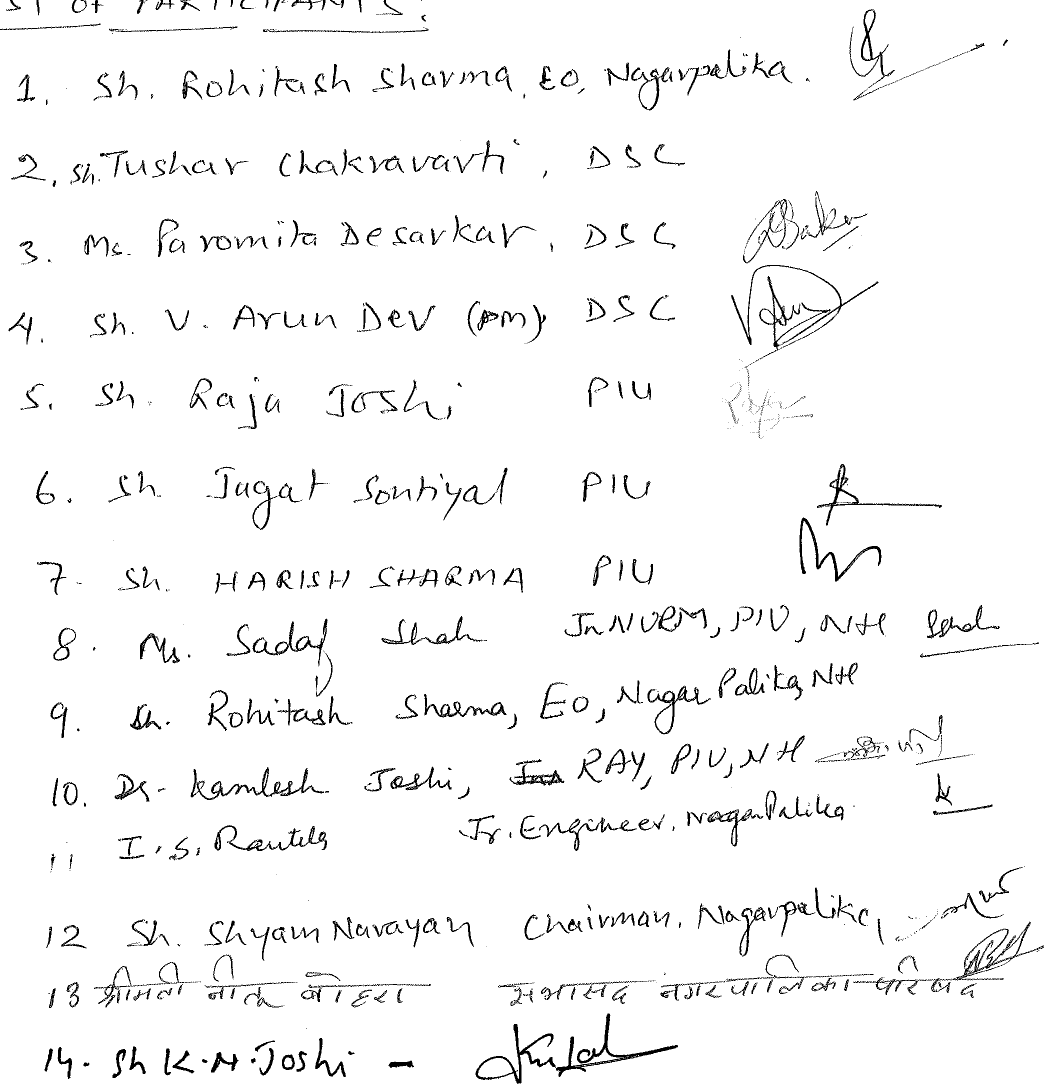 LIST OF PARTICIPANTS:
1. Sh. Rohitash Sharma, EO, Nagarpalika.
2. Sh. Tushar Chakravarti, DSC
3. Ms. Paromita Desarkar, DSC
4. Sh. V. Arun Dev (PM), DSC
5. Sh. Raja Joshi PIU
6. Sh. Jagat Sontiyal PIU
7. Sh. HARISH SHARMA PIU
8. Ms. Sadaf Shah JnNURM, PIU, NH
9. Sh. Rohitash Sharma, EO, Nagar Palika, NH
10. Dr. Kamlesh Joshi, RAY, PIU, NH
11 I.S. Rautela Jr. Engineer, NagarPalika
12 Sh. Shyam Narayan Chairman, Nagarpalika,
13 श्रीमती नीतू बोहरा सभासद नगरपालिका परिषद
14. Sh K.N. Joshi -